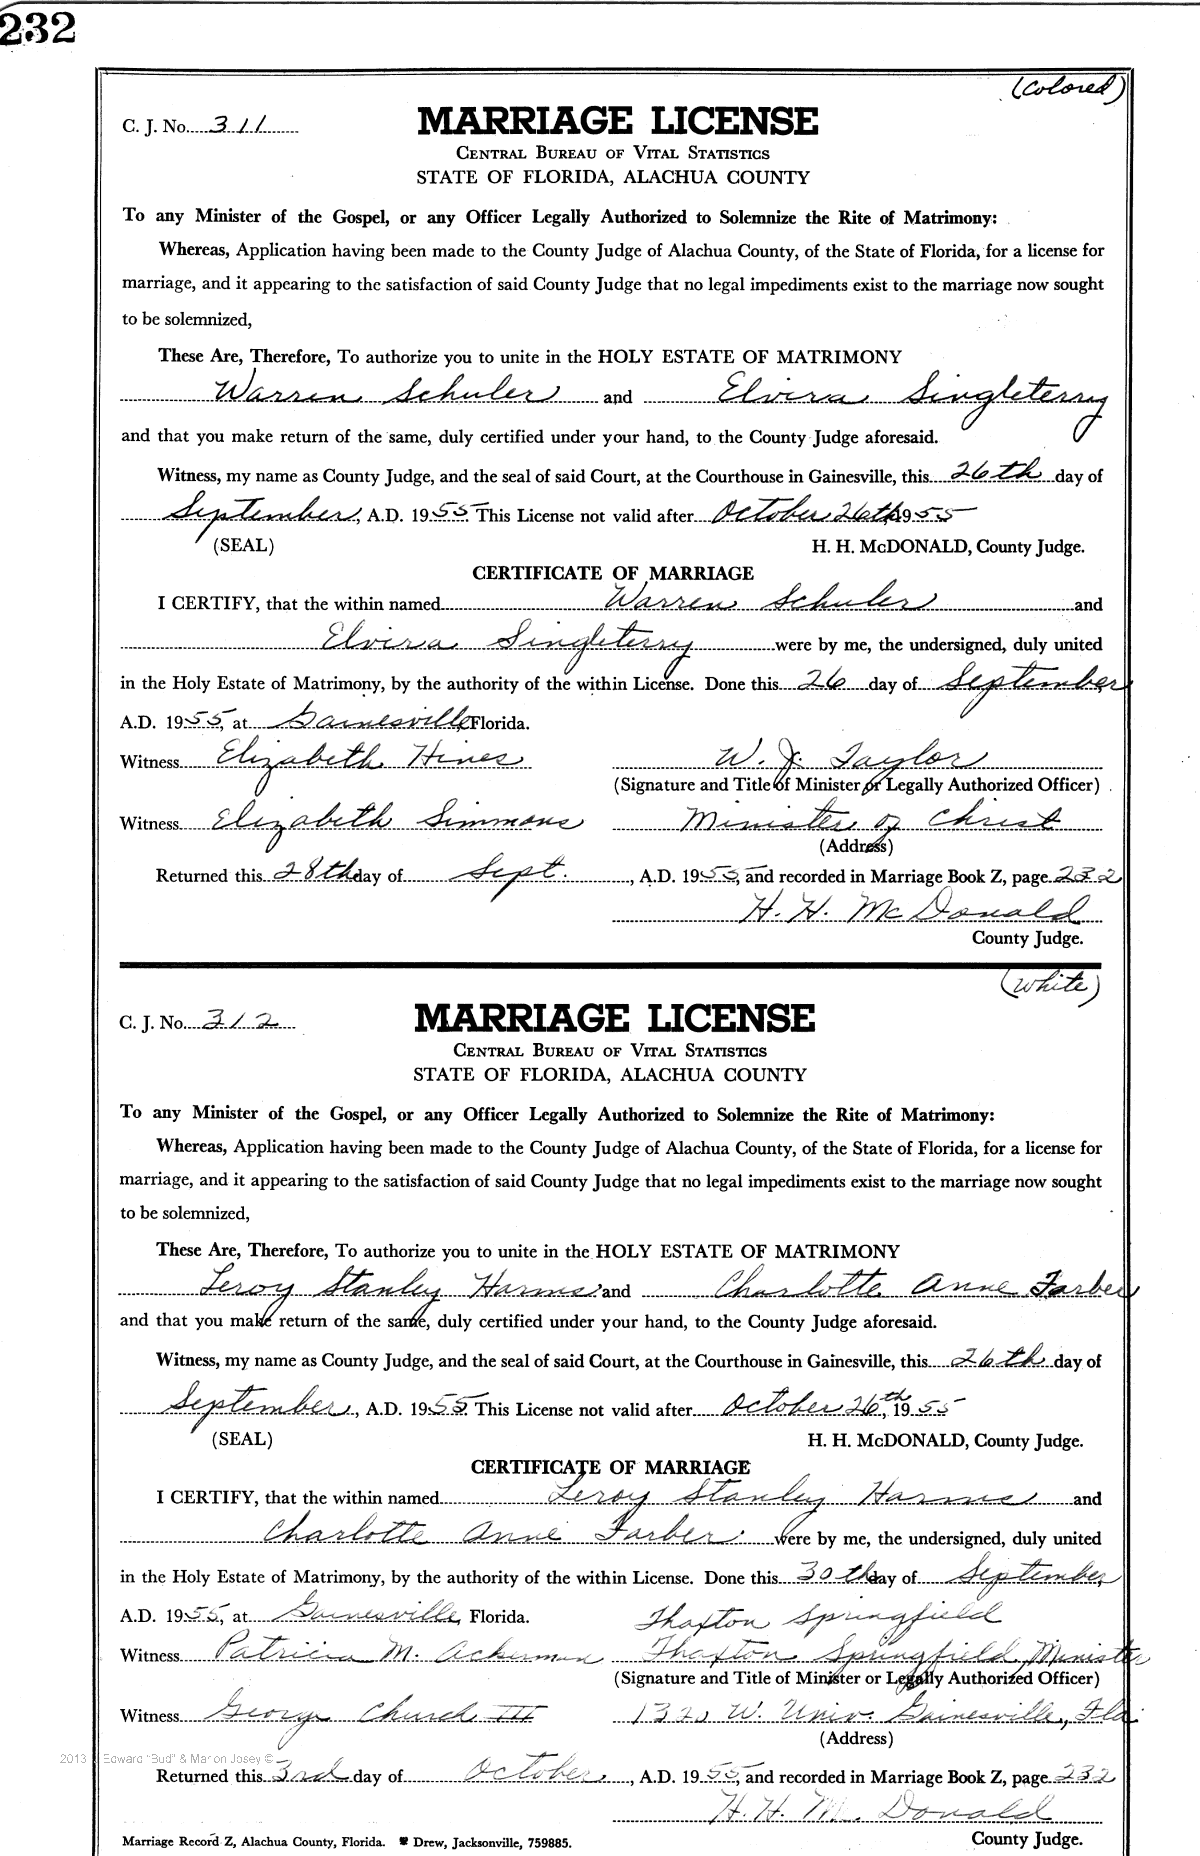 232
(Colored)
C. J. No. 311
MARRIAGE LICENSE
CENTRAL BUREAU OF VITAL STATISTICS
STATE OF FLORIDA, ALACHUA COUNTY
To any Minister of the Gospel, or any Officer Legally Authorized to Solemnize the Rite of Matrimony:
Whereas, Application having been made to the County Judge of Alachua County, of the State of Florida, for a license for
marriage, and it appearing to the satisfaction of said County Judge that no legal impediments exist to the marriage now sought
to be solemnized,
These Are, Therefore, To authorize you to unite in the HOLY ESTATE OF MATRIMONY
Warren Schuler and Elvira Singleterry
and that you make return of the same, duly certified under your hand, to the County Judge aforesaid.
Witness, my name as County Judge, and the seal of said Court, at the Courthouse in Gainesville, this 26th day of
September, A.D. 1955. This License not valid after October 26th, 1955
(SEAL) H. H. McDONALD, County Judge.
CERTIFICATE OF MARRIAGE
I CERTIFY, that the within named Warren Schuler and
Elvira Singleterry were by me, the undersigned, duly united
in the Holy Estate of Matrimony, by the authority of the within License. Done this 26 day of September,
A.D. 1955, at Gainesville, Florida.
Witness Elizabeth Hines W. J. Taylor
(Signature and Title of Minister or Legally Authorized Officer)
Witness Elizabeth Simmons Minister of Christ
(Address)
Returned this 28th day of Sept., A.D. 1955, and recorded in Marriage Book Z, page 232
H. H. McDonald
County Judge.
(White)
C. J. No. 312
MARRIAGE LICENSE
CENTRAL BUREAU OF VITAL STATISTICS
STATE OF FLORIDA, ALACHUA COUNTY
To any Minister of the Gospel, or any Officer Legally Authorized to Solemnize the Rite of Matrimony:
Whereas, Application having been made to the County Judge of Alachua County, of the State of Florida, for a license for
marriage, and it appearing to the satisfaction of said County Judge that no legal impediments exist to the marriage now sought
to be solemnized,
These Are, Therefore, To authorize you to unite in the HOLY ESTATE OF MATRIMONY
Leroy Stanley Harms and Charlotte Anne Farber
and that you make return of the same, duly certified under your hand, to the County Judge aforesaid.
Witness, my name as County Judge, and the seal of said Court, at the Courthouse in Gainesville, this 26th day of
September, A.D. 1955. This License not valid after October 26th, 1955
(SEAL) H. H. McDONALD, County Judge.
CERTIFICATE OF MARRIAGE
I CERTIFY, that the within named Leroy Stanley Harms and
Charlotte Anne Farber were by me, the undersigned, duly united
in the Holy Estate of Matrimony, by the authority of the within License. Done this 30th day of September,
A.D. 1955, at Gainesville, Florida. Thaxton Springfield
Witness Patricia M. Ackerman Thaxton Springfield, Minister
(Signature and Title of Minister or Legally Authorized Officer)
Witness George Church III 1320 W. Univ. Gainesville, Fla.
(Address)
2013 Edward "Bud" & Marion Josey ©
Returned this 3rd day of October, A.D. 1955, and recorded in Marriage Book Z, page 232
H. H. McDonald
Marriage Record Z, Alachua County, Florida. Drew, Jacksonville, 759885. County Judge.